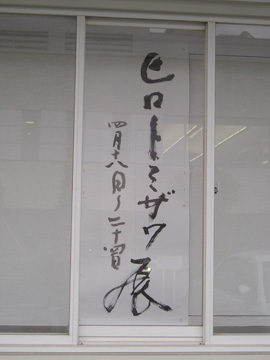 ヒロトミザワ展
四月十八日〜二十四日